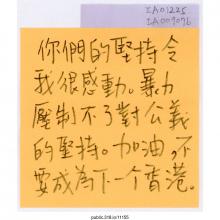 IA01225
IA007096
你們的堅持令
我很感動。暴力
壓制不了對公義
的堅持。加油,不
要成為下一个香港。
public.318.io/11155